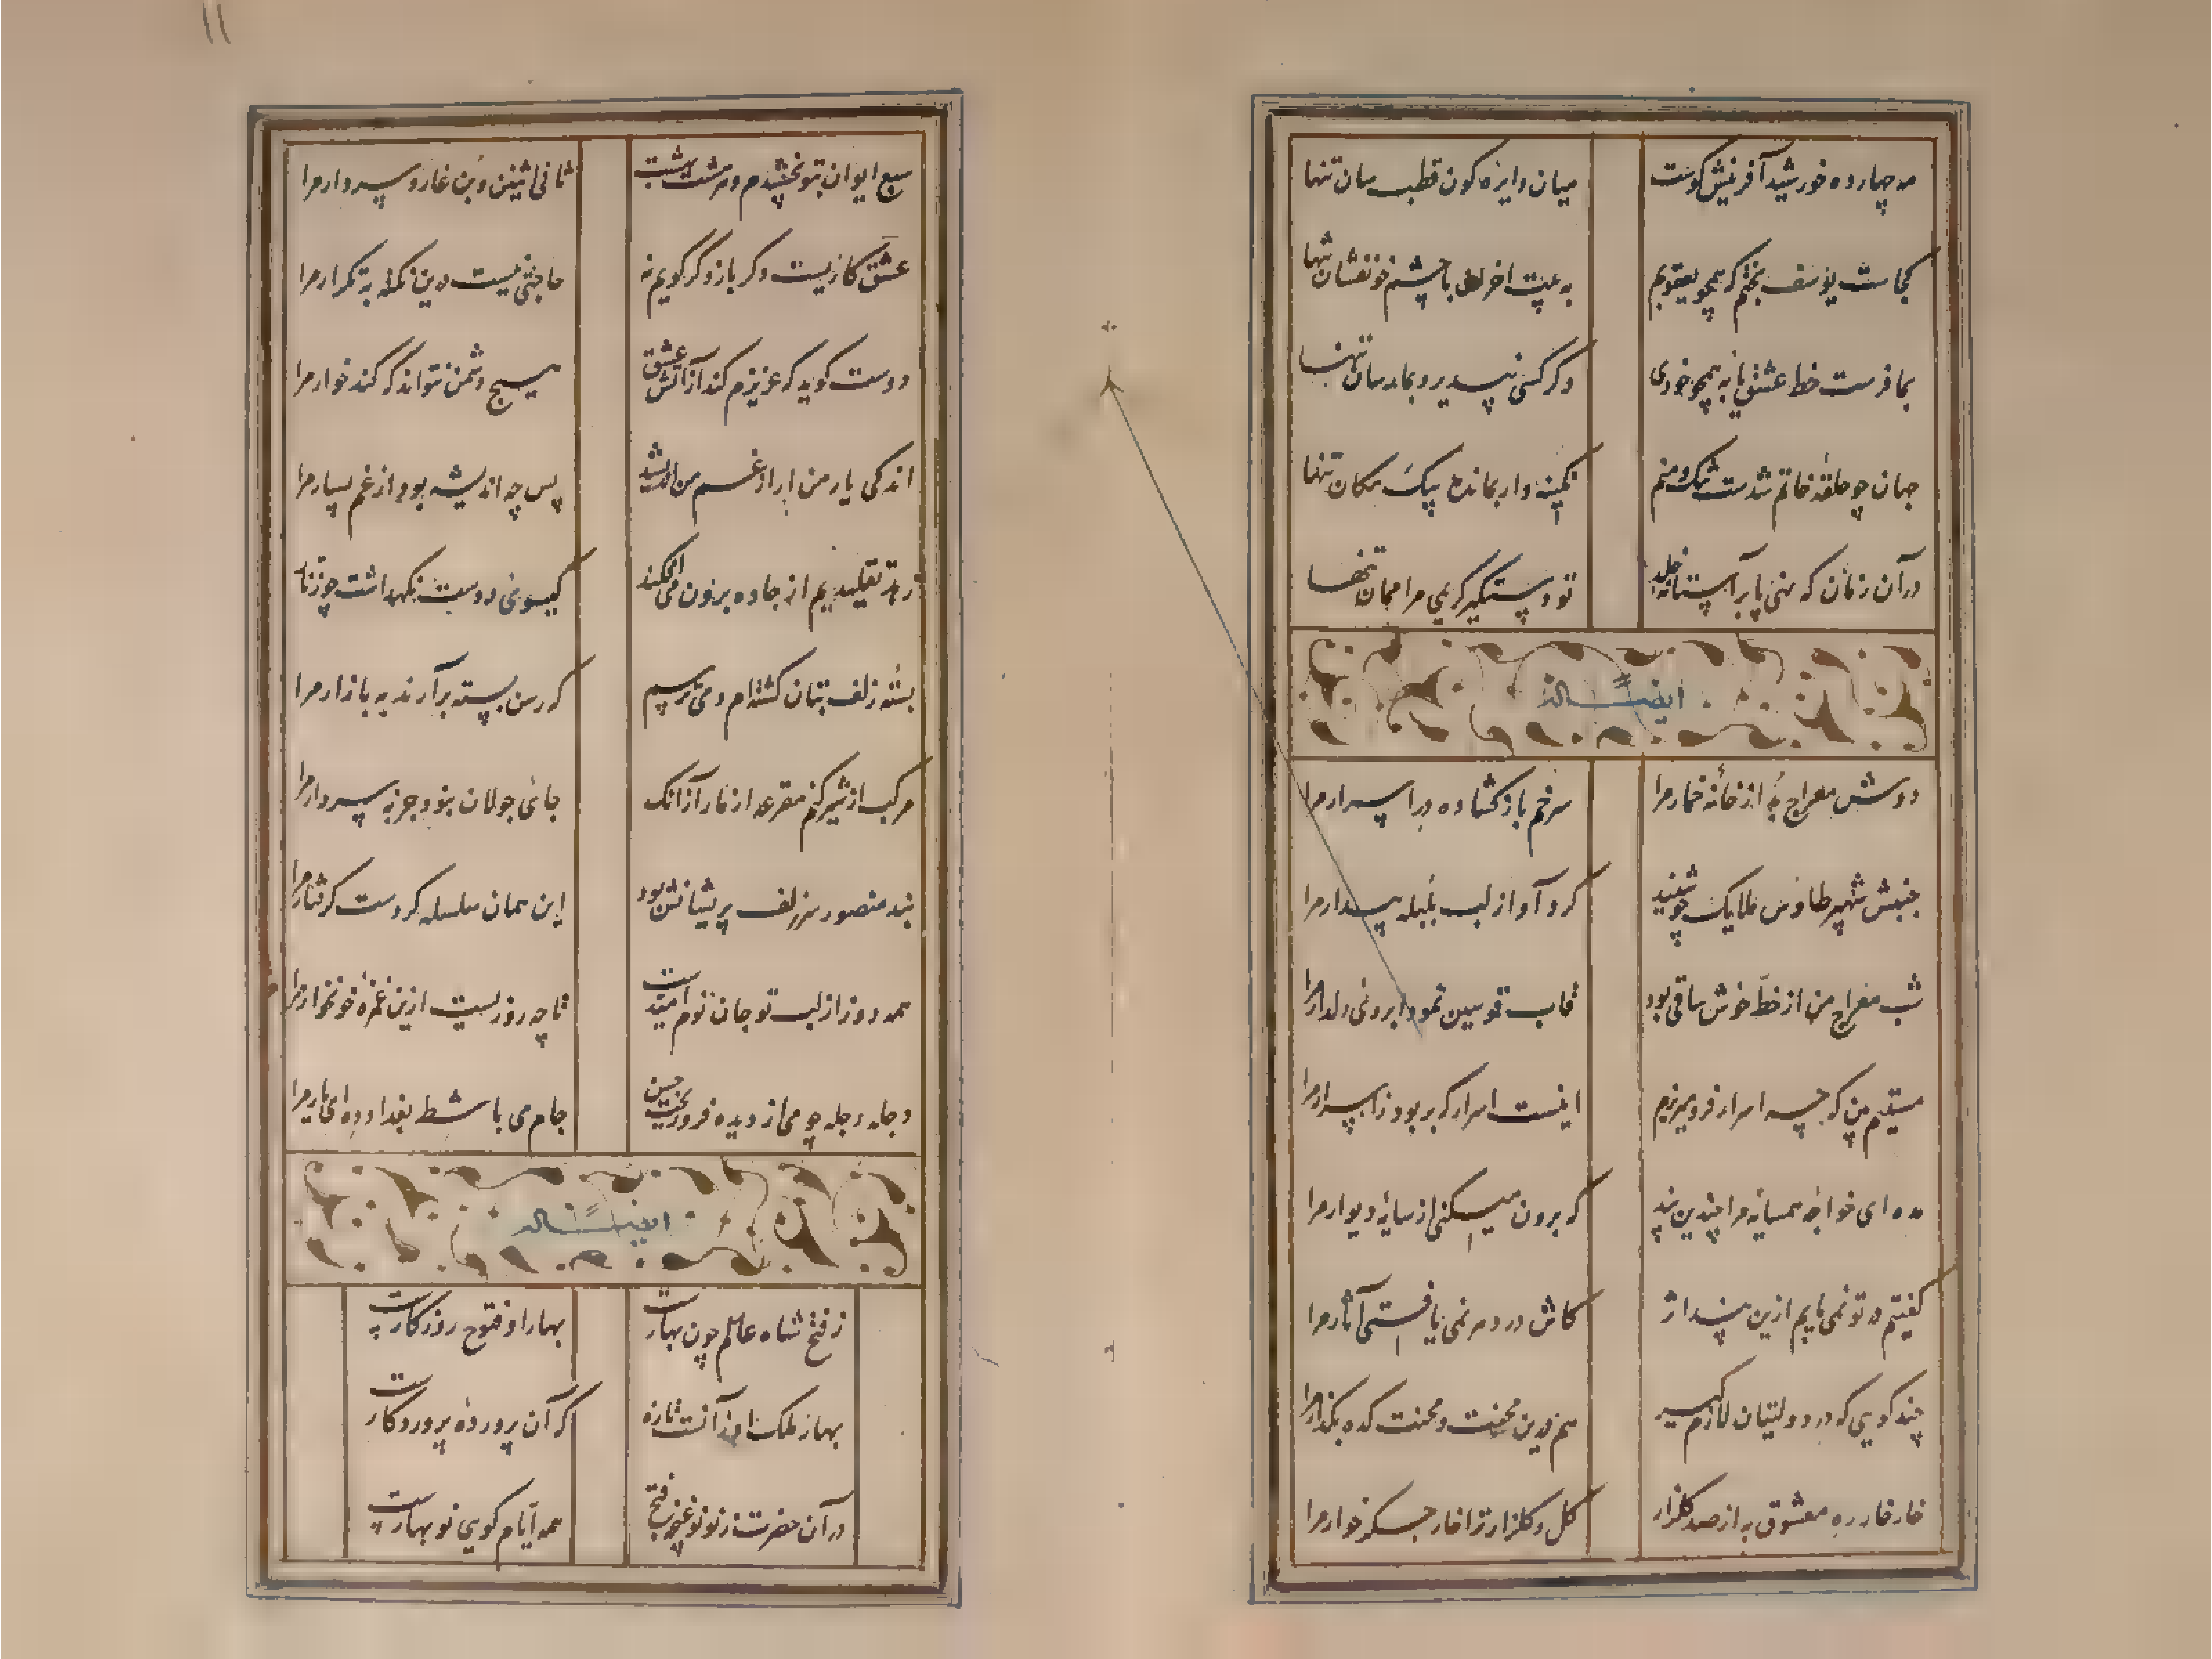 مه چهارده خورشید آفرینش کوست
میان دایره کون قطب سان تنها
کجاست یوسف بختم که همچو یعقوبم
به عیت اخر با چشم خونفشان تنها
بما فرست خط عشق یا به همچو خودی
وگر کسی نپسدیرد بما رسان تنها
جهان چو حلقهٔ خاتم شدست تنگ و منم
نگینه وار بمانده بیک مکان تنها
در آن زمان که نهی پا بر آستانه خلد
تو دستگیر کریمی مرا ممان تنها
ایضاً له
دوش معراج به از خانه خمار مرا
سر خم باز گشاده در اسرار مرا
جنبش شهپر طاوس ملایک چو شنید
کرد آواز لب بلبله بیدار مرا
شب معراج من از خطّ خوش ساقی بود
قاب قوسین نمود ابروی دلدار مرا
مستیم بین که چه اسرار فرو میریزم
اینست اسرار که بربود ز اسرار مرا
مده ای خواجه همسایه مرا چندین پند
که برون میکنی از سایه دیوار مرا
گفتیم در تو نمی یابم ازین پند اثر
کاش در دهر نمی یافتی آثار مرا
چند گویی که در دولتیان لازم گیر
هم درین محنت و محنت کده بگذار مرا
خار خار ره معشوق به از صد گلزار
گل و گلزار ترا خار جگر خوار مرا
سبع ایوان بتو بخشیدم و هر هشت بهشت
ثانی اثنین و بن غار و سر دار مرا
عشق کاریست دگر باز دگر گویم نه
حاجتی نیست درین نکته به تکرار مرا
دوست گوید که عزیزم کند از آتش عشق
هیچ دشمن نتواند که کند خوار مرا
اندکی یار من ار از غم من اندیشد
پس چه اندیشه بود از غم بسیار مرا
زهد تقلیدیم از جاده برون می افکند
گیسوی دوست نگهداشت چو زنار مرا
بسته زلف بتان گشته ام و می ترسم
که رسن بسته برآرند به بازار مرا
مرکب از شیر کنم مقرعه از مار از آنک
جای جولان نبود جز به سر دار مرا
بند منصور سر زلف پریشانش بود
این همان سلسله کردست گرفتار مرا
همه روز از لب تو جان نوم امیدست
تا چه روزیست ازین غمزه خونخوار مرا
دجله دجله چو می از دیده فرو ریخت حسن
جام می با شط بغداد ده ای یار مرا
ایضاً له
ز فتح شاه عالم چون بهارست
بهار او فتوح روزگارست
بهار ملک از آنست تازه
که آن پروردهٔ پروردگارست
در آن حضرت ز نو نو غنچه فتح
همه ایّام گویی نو بهارست